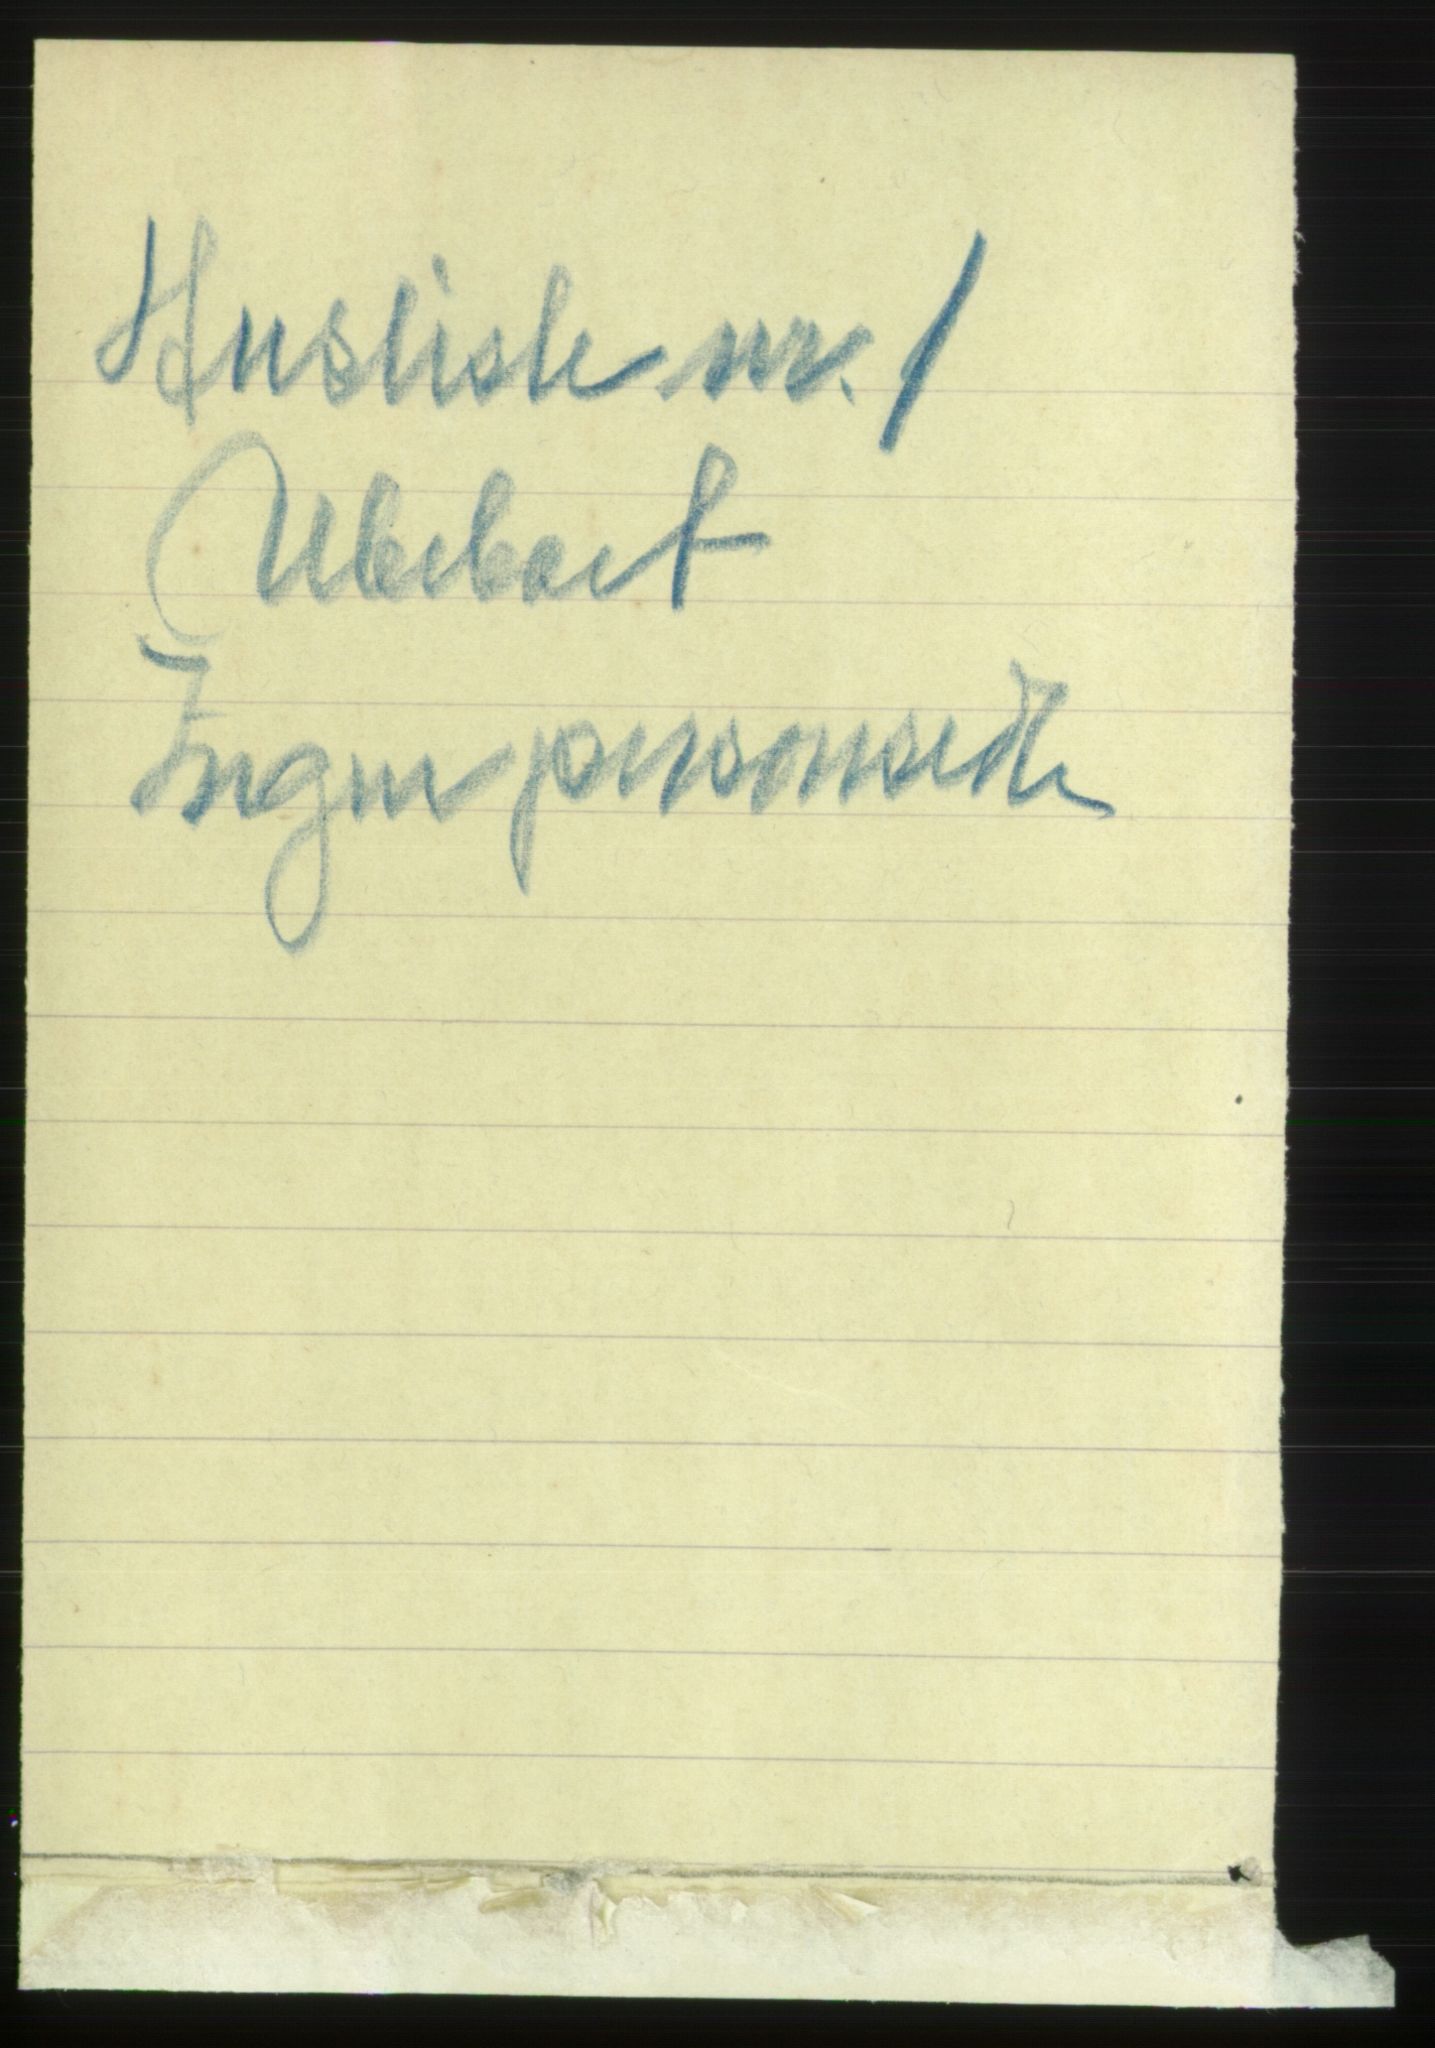 Husliste nr. 1
Ubeboet
Ingen personsedle